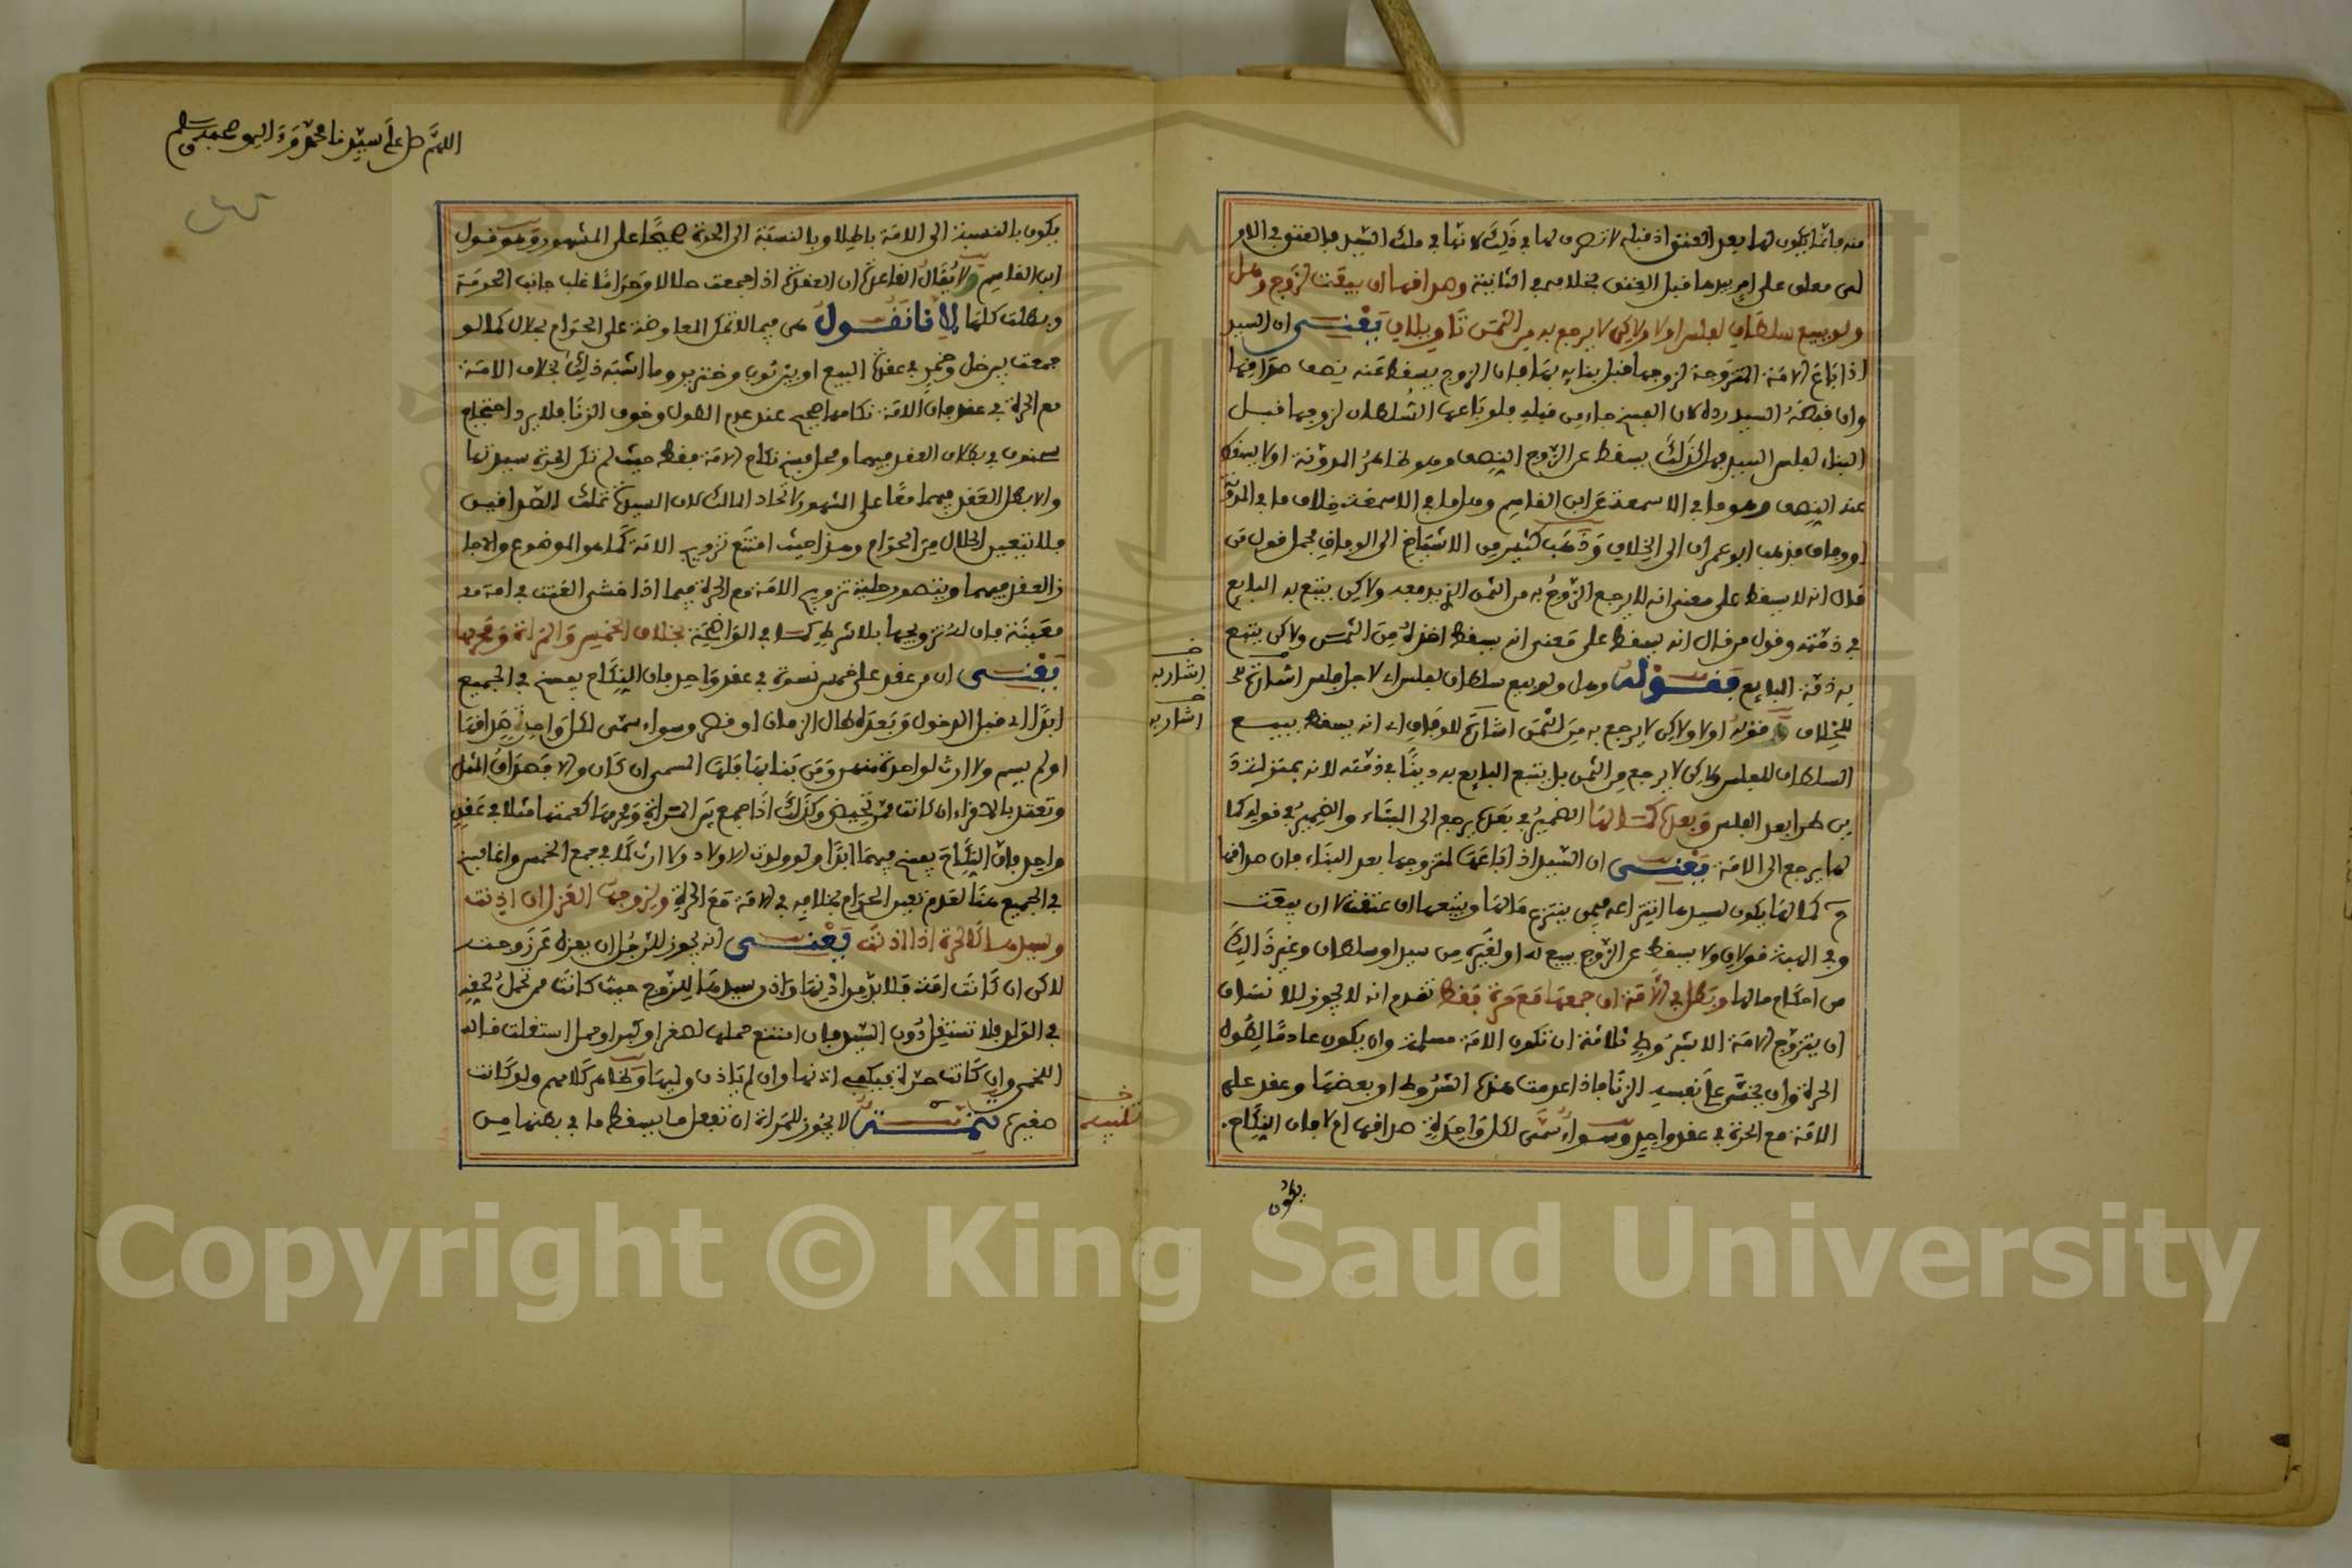 منه فانما يكون لها بعد العتق اذ قبله لا تصرف لها في ذلك لانها في ملك السيد فالعتق في الاو
لى معلق على امر بيدها قبل العتق بخلافه في الثانية وصداقها ان بيعت لزوج وهل
ولو ببيع سلطان لفلس او لا ولاكن لا يرجع به من الثمن تاويلان يعنى ان السيد
اذا باع الامة المتزوجة لزوجها قبل بنايه بها فان الزوج يسقط عنه نصف صداقها
وان قبضه السيد رده لان الفسخ جاء من قبله فلو باعها السلطان لزوجها قبل
البناء لفلس السيد فهل كذلك يسقط عن الزوج النصف وهو ظاهر المدونة او لا يسقط
عنه النصف وهو ما في الاسمعة عن ابن القاسم وهل ما في الاسمعة خلاف ما في المدونة
او وفاق فذهب ابو عمران الى الخلاف وذهب كثير من الاشياخ الى الوفاق فحمل قول من
قال انه لا يسقط على معنى انه لا يرجع الزوج به من الثمن الذي دفعه ولاكن يتبع به البايع
في ذمته وقول من قال انه يسقط على معنى انه يسقط اخذه من الثمن ولاكن يتبع
به ذمة البايع فقوله وهل ولو ببيع سلطان لفلس اى لاجل فلس اشارة
للخلاف وقوله او لا ولاكن لا يرجع به من الثمن اشارة للوفاق اى انه يسقط ببيع
السلطان للفلس ولاكن لا يرجع من الثمن بل يتبع البايع به دينا في ذمته لانه بمنزلة د
ين طرا بعد الفلس وبعده كمالها الضمير في بعده يرجع الى البناء والضمير في قوله كما
لها يرجع الى الامة يعنى ان السيد اذا باعها لمتزوجها بعد البناء فان صداقها
ح كمالها يكون لسيدها انتزاعه فيمن ينتزع مالها ويتبعها ان عتقت لا ان بيعت
وفي الهبة قولان ولا يسقط عن الزوج ببيع له او لغيره من سيد او سلطان وغير ذالك
من احكام مالها وبطل في الامة ان جمعها مع حرة فقط تقدم انه لا يجوز للانسان
ان يتزوج الامة الا بشروط ثلاثة ان تكون الامة مسلمة وان يكون عادما لطول
الحرة وان يخشى على نفسه الزنا فاذا عدمت هذه الشروط او بعضها وعقد على
الامة مع الحرة في عقد واحد وسواء سمى لكل واحدة صداقها ام لا فان النكاح
يكون
اشار به
اشار به
اللهم صل على سيدنا محمد وءاله وصحبه وسلم
يكون بالنسبة الى الامة باطلا وبالنسبة الى الحرة صحيحا على المشهور وهو قول
ابن القاسم ولا يقال القاعدة ان العقدة اذا جمعت حلالا وحراما غلب جانب الحرمة
وبطلت كلها لانا نقول هى فيما لا تمكن المعاوضة على الحرام بحال كما لو
جمعت بين خل وخمر في عقدة البيع او بين ثوب وخنزير وما اشبه ذلك بخلاف الامة
مع الحرة في عقد فان الامة نكاحها صحيح عند عدم الطول وخوف الزنا فلا يرد احتجاج
سحنون في بطلان العقد فيهما ومحل فسخ نكاح الامة فقط حيث لم تكن الحرة سيدتها
والا بطل العقد فيهما معا على المشهور لاتحاد المالك لان السيدة تملك الصداقين
فلا يتعين الحلال من الحرام وهذا حيث امتنع تزويج الامة كما هو الموضوع والا جا
ز العقد فيهما ويتصور حلية تزويج الامة مع الحرة فيما اذا خشى العنت في امة
معينة فان له تزويجها بلا شرط كما في الواضحة بخلاف الخمس والمراة ومحرمها
يعنى ان من عقد على خمس نسوة في عقد واحد فان النكاح يفسخ في الجميع
ابدا اى قبل الدخول وبعده طال الزمان او قصر وسواء سمى لكل واحدة صداقها
او لم يسم ولا ارث لواحدة منهن ومن بنا بها فلها المسمى ان كان والا فصداق المثل
وتعتد بالاقراء ان كانت ممن تحيض وكذلك اذا جمع بين المراة ومحرمها كعمتها مثلا في عقد
واحد فان النكاح يفسخ فيهما ابدا ولو ولدت الاولاد ولا ارث كما في جمع الخمس وانما فسخ
في الجميع هنا لعدم تعين الحرام بخلافه في الامة مع الحرة ولزوجها العزل ان اذنت
وسيدها كالحرة اذا اذنت يعنى انه يجوز للرجل ان يعزل عن زوجته
لاكن ان كانت امة فلا بد من اذنها واذن سيدها للزوج حيث كانت ممن تحمل لحقه
في الولد فلا تستقل دون السيد فان امتنع حملها لصغر او كبر او حمل استقلت قاله
اللخمى وان كانت حرة فيكفى اذنها وان لم ياذن وليها وظاهر كلامهم ولو كانت
صغيرة تنبيه لا يجوز للمراة ان تفعل ما يسقط ما في بطنها من
تنبيه